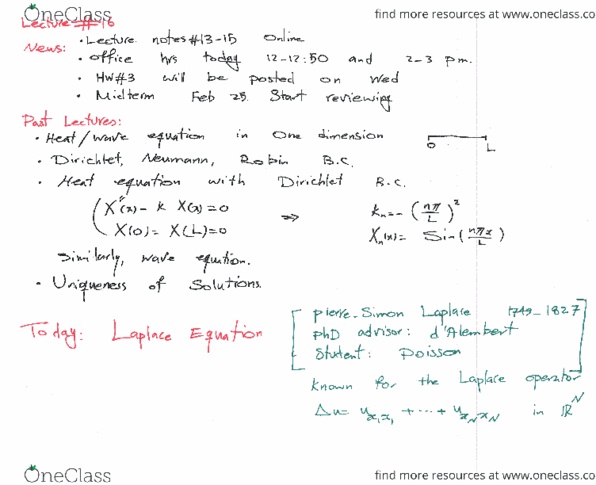 OneClass
find more resources at www.oneclass.co
Lecture #16
News: • Lecture notes #13-15 Online
• Office hrs today 12-12:50 and 2-3 p.m.
• HW#3 will be posted on Wed
• Midterm Feb 25. Start reviewing
Past Lectures:
• Heat/wave equation in One dimension
0 L
• Dirichlet, Neumann, Robin B.C.
• Heat equation with Dirichlet B.C.
X''(x) - k X(x) = 0 ⇒ kₙ = -(nπ/L)²
X(0) = X(L) = 0 Xₙ(x) = Sin(nπx/L)
Similarly, wave equation.
• Uniqueness of Solutions.
Today: Laplace Equation
Pierre-Simon Laplace 1749-1827
PhD advisor: d'Alembert
Student: Poisson
known for the Laplace operator
Δu = u_{x₁x₁} + ··· + u_{x_N x_N} in ℝᴺ
OneClass
find more resources at www.oneclass.co